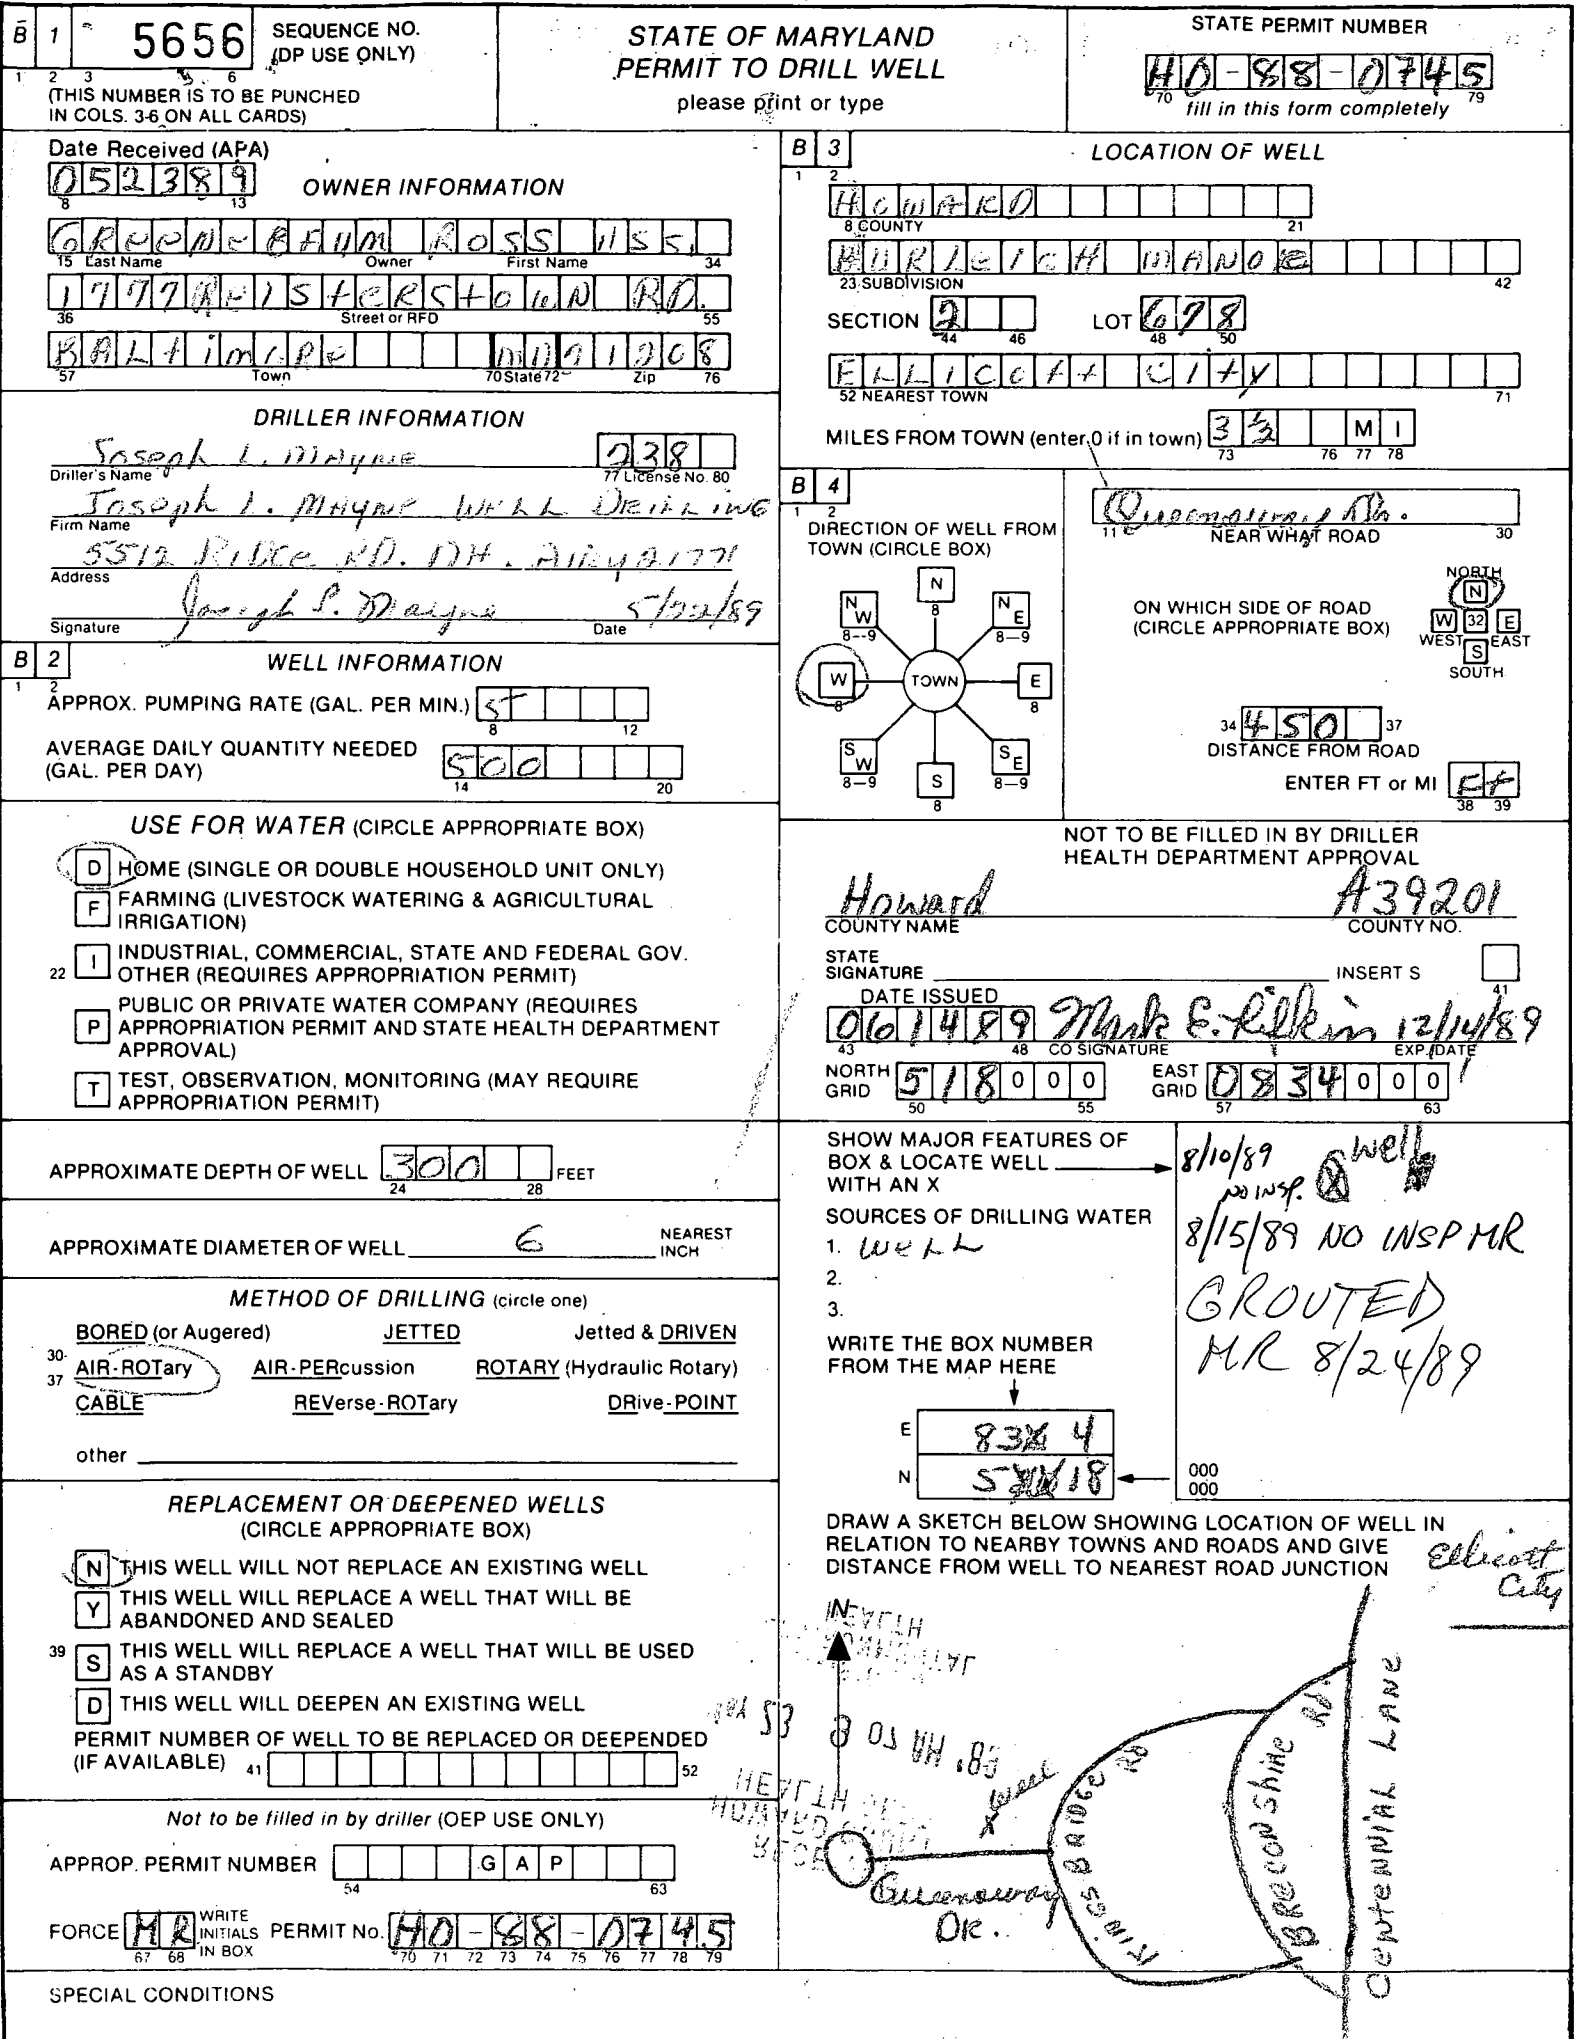 B 1 5656 SEQUENCE NO. (DP USE ONLY)
1 2 3 6
(THIS NUMBER IS TO BE PUNCHED
IN COLS. 3-6 ON ALL CARDS)
STATE OF MARYLAND
PERMIT TO DRILL WELL
please print or type
STATE PERMIT NUMBER
HO-88-0745
70 79
fill in this form completely
Date Received (APA)
052389
8 13
OWNER INFORMATION
GREENEBAUM ROSS
15 Last Name Owner First Name 34
1777 REISTERSTOWN RD.
36 Street or RFD 55
BALTIMORE MD 21208
57 Town 70 State 72 Zip 76
DRILLER INFORMATION
Joseph L. Mayne 238
Driller's Name 77 License No. 80
Joseph L. Mayne Well Drilling
Firm Name
5512 Ridge RD. Mt. Airy 21771
Address
Joseph L. Mayne 5/22/89
Signature Date
B 2 WELL INFORMATION
1 2
APPROX. PUMPING RATE (GAL. PER MIN.) 5
8 12
AVERAGE DAILY QUANTITY NEEDED
(GAL. PER DAY) 500
14 20
USE FOR WATER (CIRCLE APPROPRIATE BOX)
D HOME (SINGLE OR DOUBLE HOUSEHOLD UNIT ONLY)
F FARMING (LIVESTOCK WATERING & AGRICULTURAL
IRRIGATION)
22 I INDUSTRIAL, COMMERCIAL, STATE AND FEDERAL GOV.
OTHER (REQUIRES APPROPRIATION PERMIT)
P PUBLIC OR PRIVATE WATER COMPANY (REQUIRES
APPROPRIATION PERMIT AND STATE HEALTH DEPARTMENT
APPROVAL)
T TEST, OBSERVATION, MONITORING (MAY REQUIRE
APPROPRIATION PERMIT)
APPROXIMATE DEPTH OF WELL 300 FEET
24 28
APPROXIMATE DIAMETER OF WELL 6 NEAREST INCH
METHOD OF DRILLING (circle one)
BORED (or Augered) JETTED Jetted & DRIVEN
30-37 AIR-ROTary AIR-PERcussion ROTARY (Hydraulic Rotary)
CABLE REVerse-ROTary DRive-POINT
other
REPLACEMENT OR DEEPENED WELLS
(CIRCLE APPROPRIATE BOX)
N THIS WELL WILL NOT REPLACE AN EXISTING WELL
Y THIS WELL WILL REPLACE A WELL THAT WILL BE
ABANDONED AND SEALED
39 S THIS WELL WILL REPLACE A WELL THAT WILL BE USED
AS A STANDBY
D THIS WELL WILL DEEPEN AN EXISTING WELL
PERMIT NUMBER OF WELL TO BE REPLACED OR DEEPENED
(IF AVAILABLE) 41 52
Not to be filled in by driller (OEP USE ONLY)
APPROP. PERMIT NUMBER GAP
54 63
FORCE MR WRITE INITIALS IN BOX PERMIT No. HO-88-0745
67 68 70 71 72 73 74 75 76 77 78 79
SPECIAL CONDITIONS
B 3 LOCATION OF WELL
1 2
HOWARD
8 COUNTY 21
BURLEIGH MANOR
23 SUBDIVISION 42
SECTION 2 LOT 678
44 46 48 50
ELLICOTT CITY
52 NEAREST TOWN 71
MILES FROM TOWN (enter 0 if in town) 3 1/2 MI
73 76 77 78
B 4
1 2
DIRECTION OF WELL FROM
TOWN (CIRCLE BOX)
N
8
NW NE
8--9 8--9
W TOWN E
8 8
SW SE
8--9 8--9
S
8
Queensway Dr.
11 NEAR WHAT ROAD 30
ON WHICH SIDE OF ROAD
(CIRCLE APPROPRIATE BOX)
NORTH
N
W 32 E
WEST EAST
S
SOUTH
34 450 37
DISTANCE FROM ROAD
ENTER FT or MI Ft
38 39
NOT TO BE FILLED IN BY DRILLER
HEALTH DEPARTMENT APPROVAL
Howard A39201
COUNTY NAME COUNTY NO.
STATE
SIGNATURE INSERT S
41
DATE ISSUED
061489 Mark E. Rifkin 12/14/89
43 48 CO SIGNATURE EXP. DATE
NORTH GRID 518000 EAST GRID 0834000
50 55 57 63
SHOW MAJOR FEATURES OF
BOX & LOCATE WELL
WITH AN X
SOURCES OF DRILLING WATER
1. WELL
2.
3.
WRITE THE BOX NUMBER
FROM THE MAP HERE
E 83 4
N 5 18
8/10/89 well
NO INSP. X
8/15/89 NO INSP MR
GROUTED
MR 8/24/89
000
000
DRAW A SKETCH BELOW SHOWING LOCATION OF WELL IN
RELATION TO NEARBY TOWNS AND ROADS AND GIVE
DISTANCE FROM WELL TO NEAREST ROAD JUNCTION
Ellicott
City
N
x well
Queensway
DR.
KINGS BRIDGE RD
BRECONSHIRE RD.
CENTENNIAL LANE